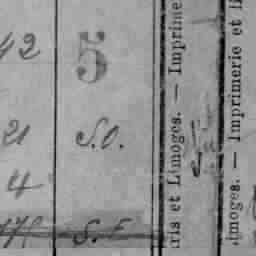 42 5
21 S.O.
4
S.F.
ris et Limoges. — Imprime
imoges. — Imprimerie et li